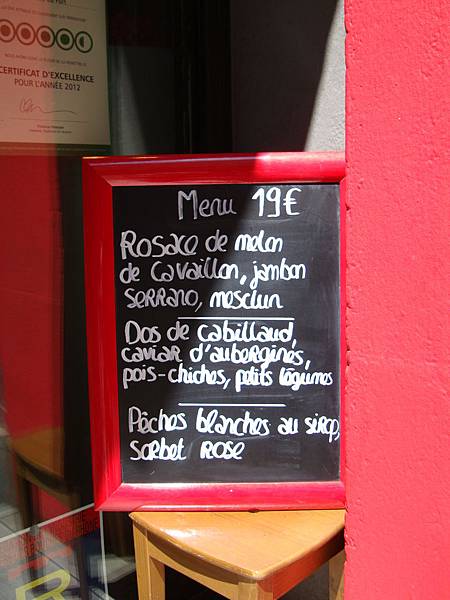 CERTIFICAT D'EXCELLENCE
POUR L'ANNÉE 2012
Menu 19€
Rosace de melon
de Cavaillon, jambon
SERRANO, mesclun
Dos de cabillaud,
caviar d'aubergines,
pois-chiches, petits légumes
Pêches blanches au sirop,
sorbet ROSE